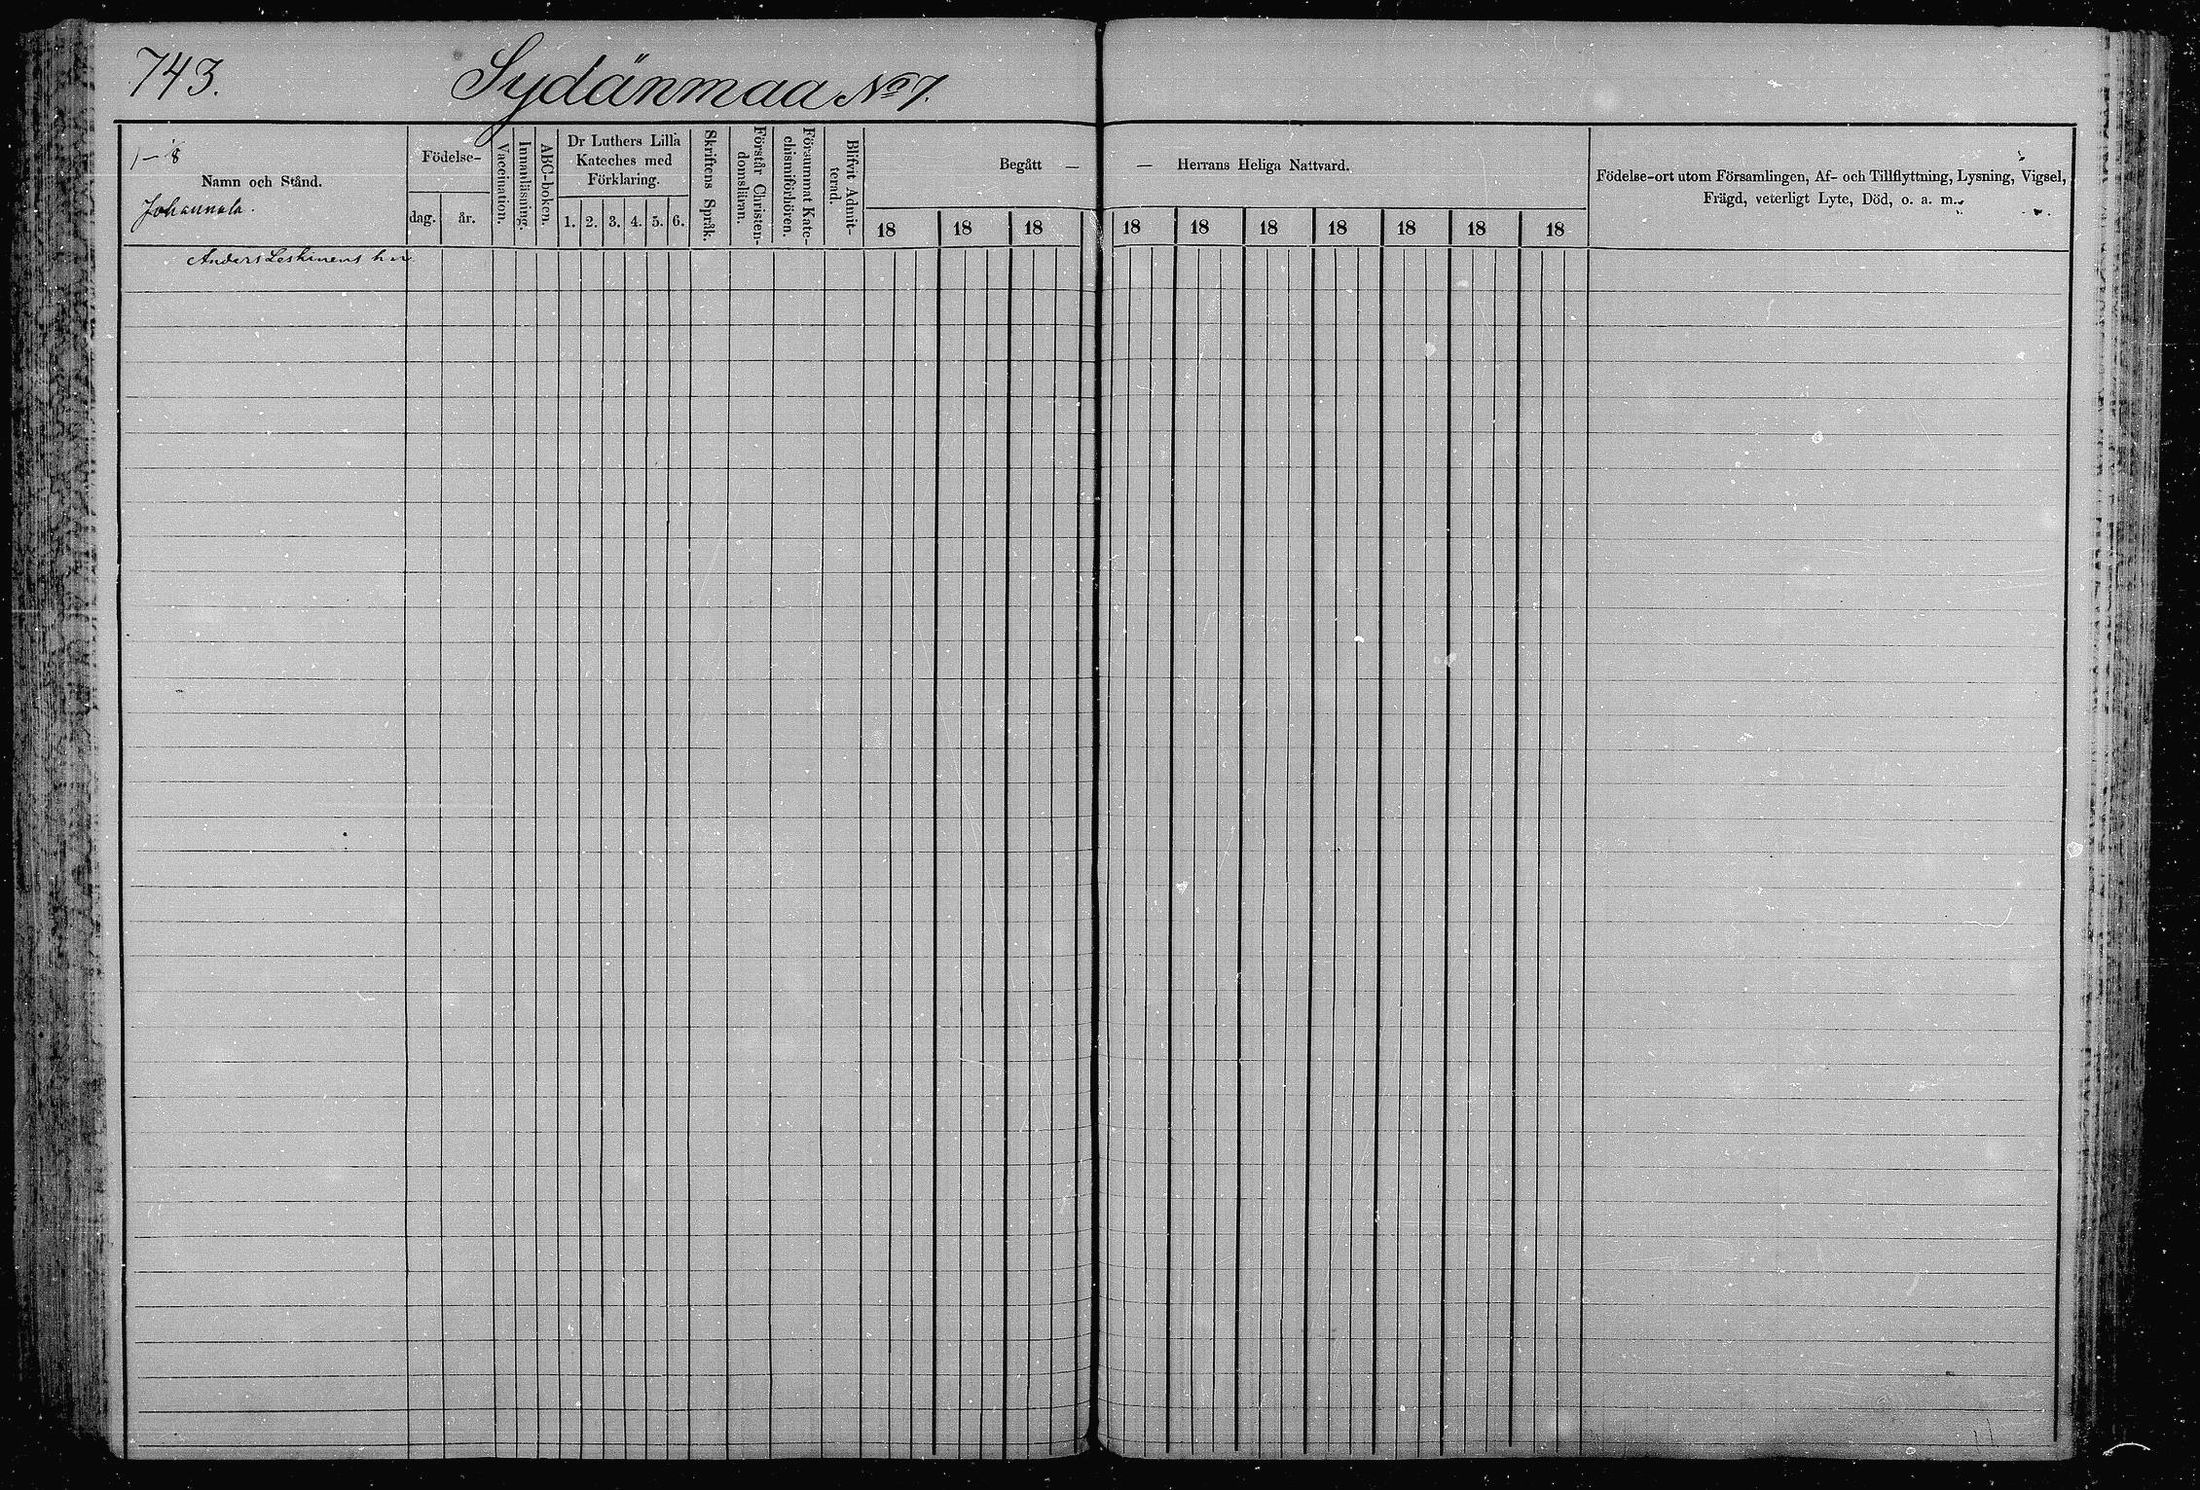 743.
Sydänmaa No 7.
1–8
Namn och Stånd.
Johannala.
Födelse-
dag. år.
Vaccination.
Innanläsning.
ABC-boken.
Dr Luthers Lilla
Kateches med
Förklaring.
1. 2. 3. 4. 5. 6.
Skriftens Språk.
Förstår Christen-
domsläran.
Försummat Kate-
chismiförhören.
Blifvit Admit-
terad.
Begått — — Herrans Heliga Nattvard.
18 18 18 18 18 18 18 18 18 18
Födelse-ort utom Församlingen, Af- och Tillflyttning, Lysning, Vigsel,
Frägd, veterligt Lyte, Död, o. a. m.
Anders Leskinens